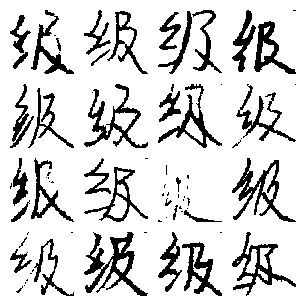 级级级级
级级级级
级级级级
级级级级